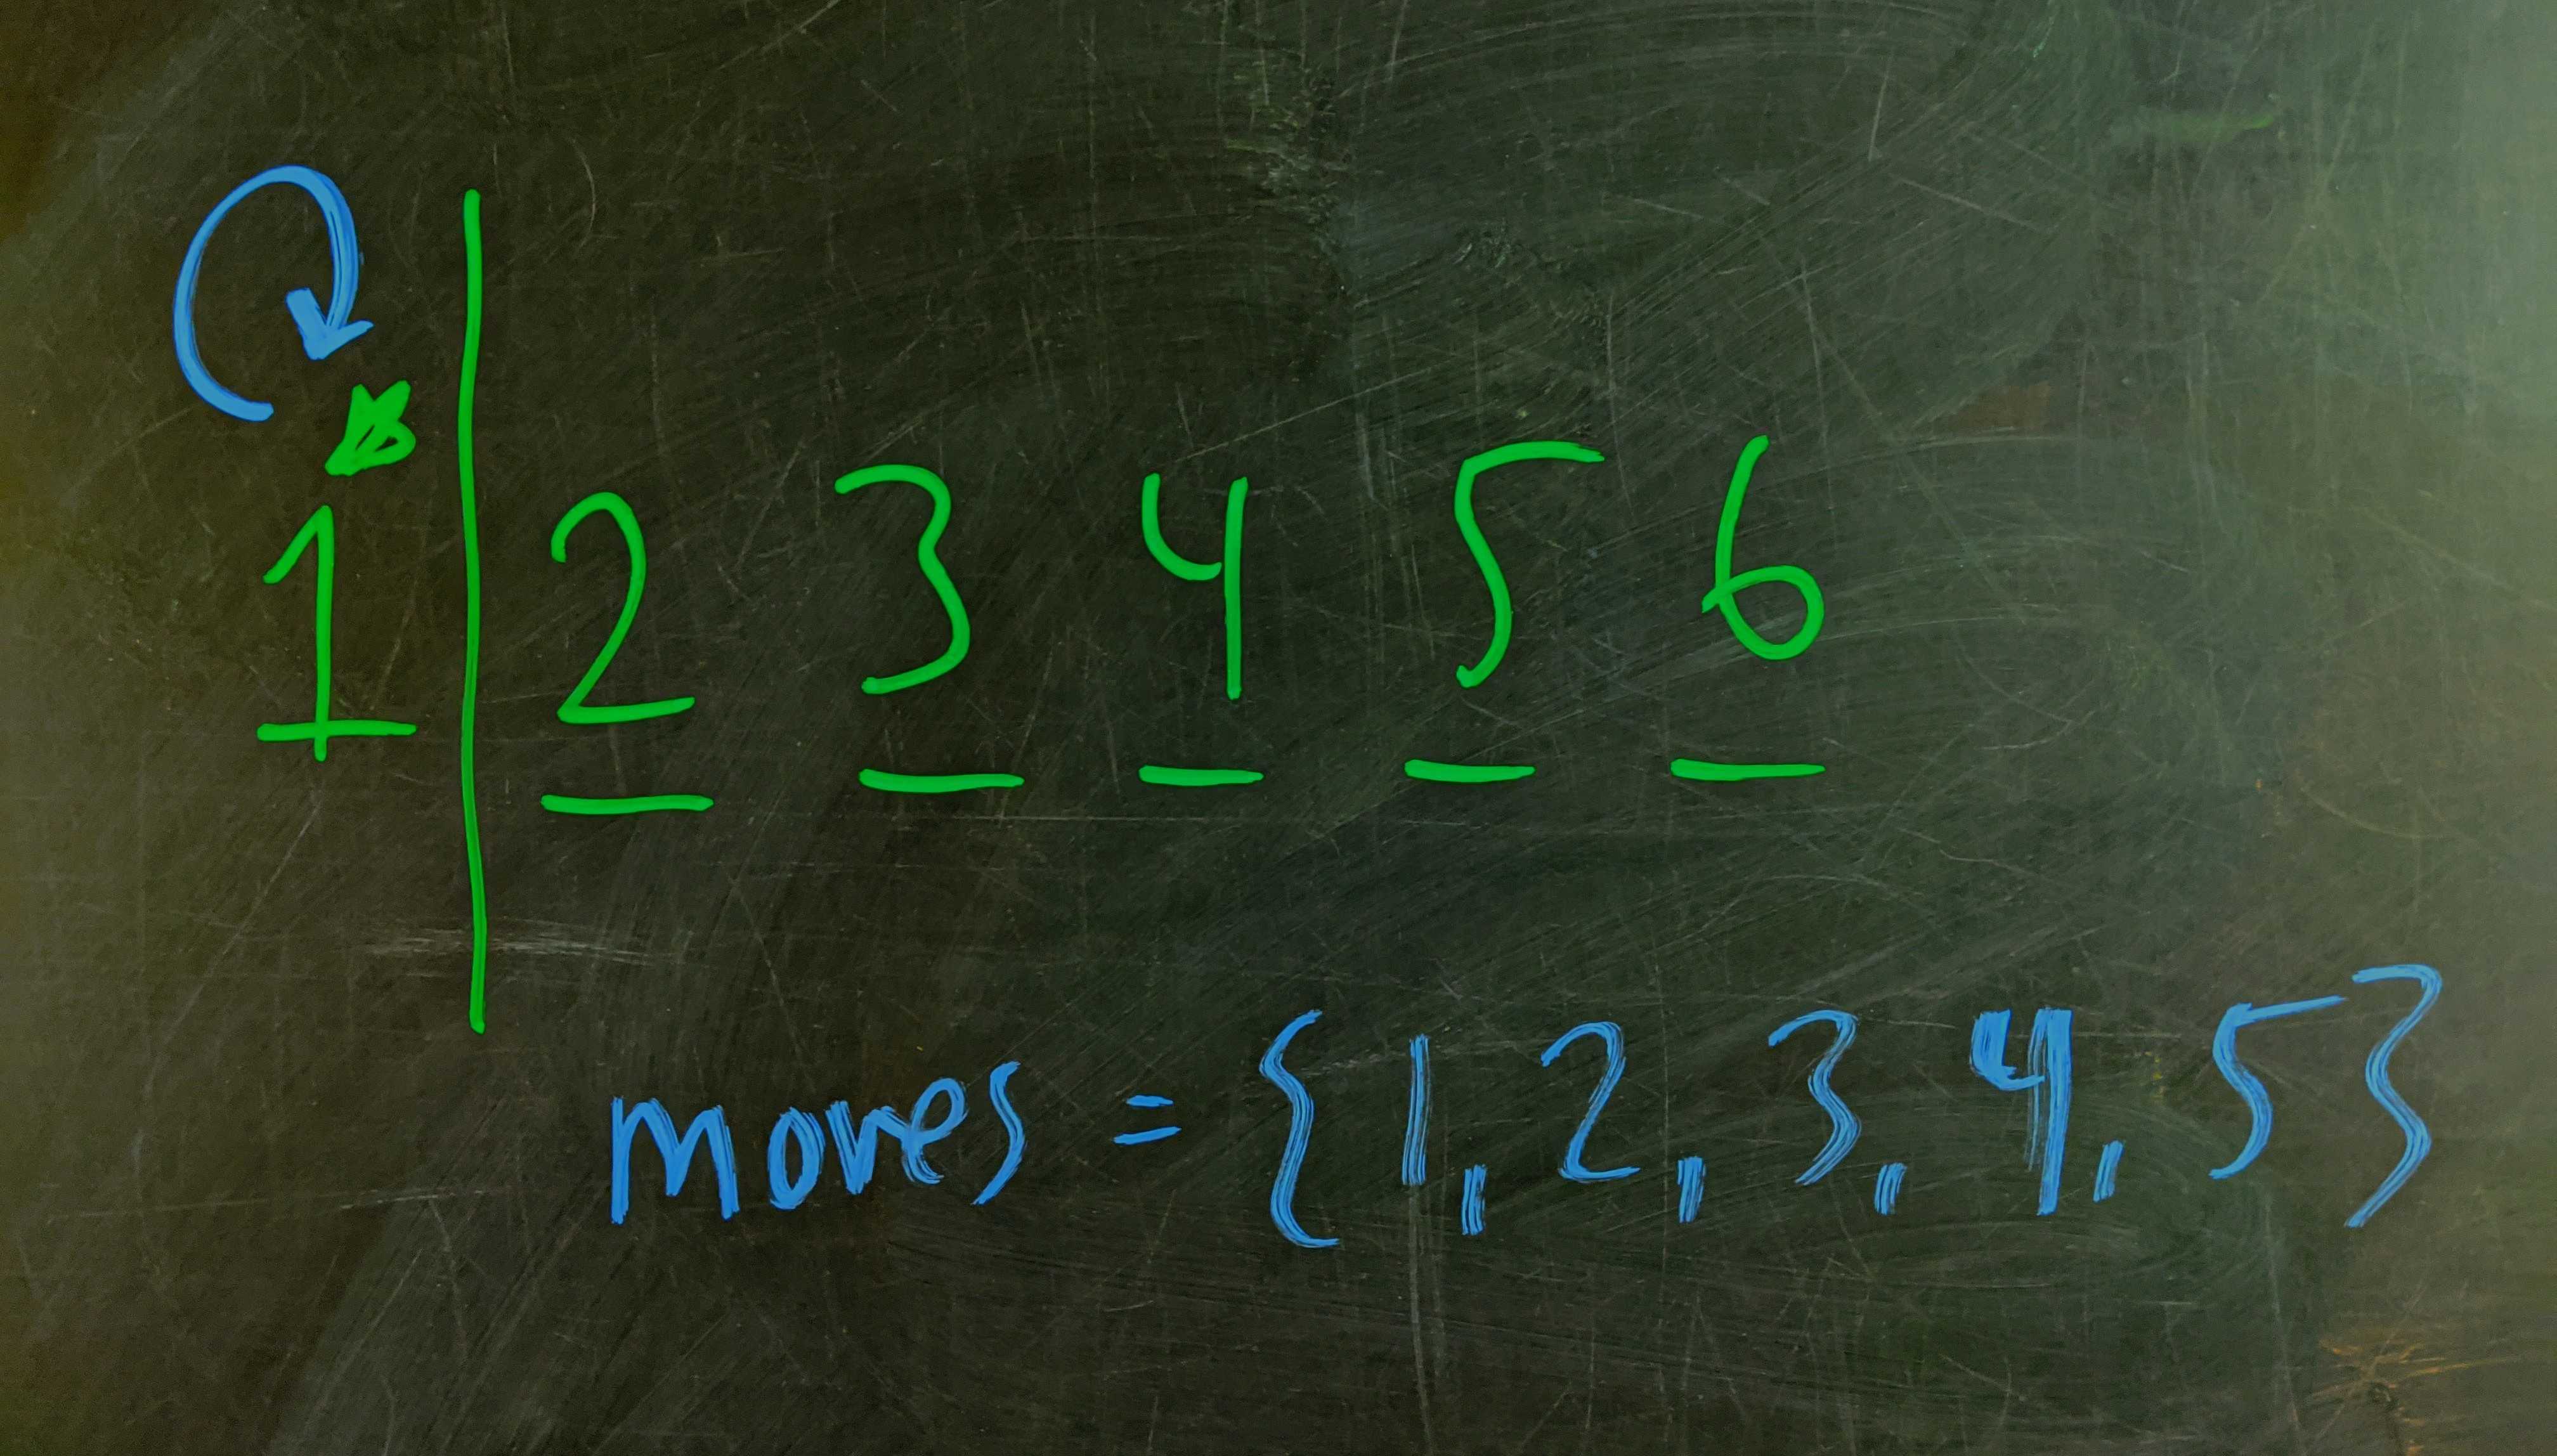 1 | 2 3 4 5 6
moves = {1, 2, 3, 4, 5}